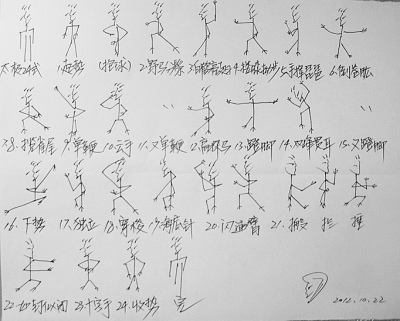 太极24式 1.起势 (抱球) 2.野马分鬃 3.白鹤亮翅 4.搂膝拗步 5.手挥琵琶 6.倒卷肱
7.8.揽雀尾 9.单鞭 10.云手 11.又单鞭 12.高探马 13.蹬脚 14.双峰贯耳 15.又蹬脚
16.下势 17.独立 18.穿梭 19.海底针 20.闪通臂 21.搬 拦 捶
22.如封似闭 23.十字手 24.收势 完
2012.10.22